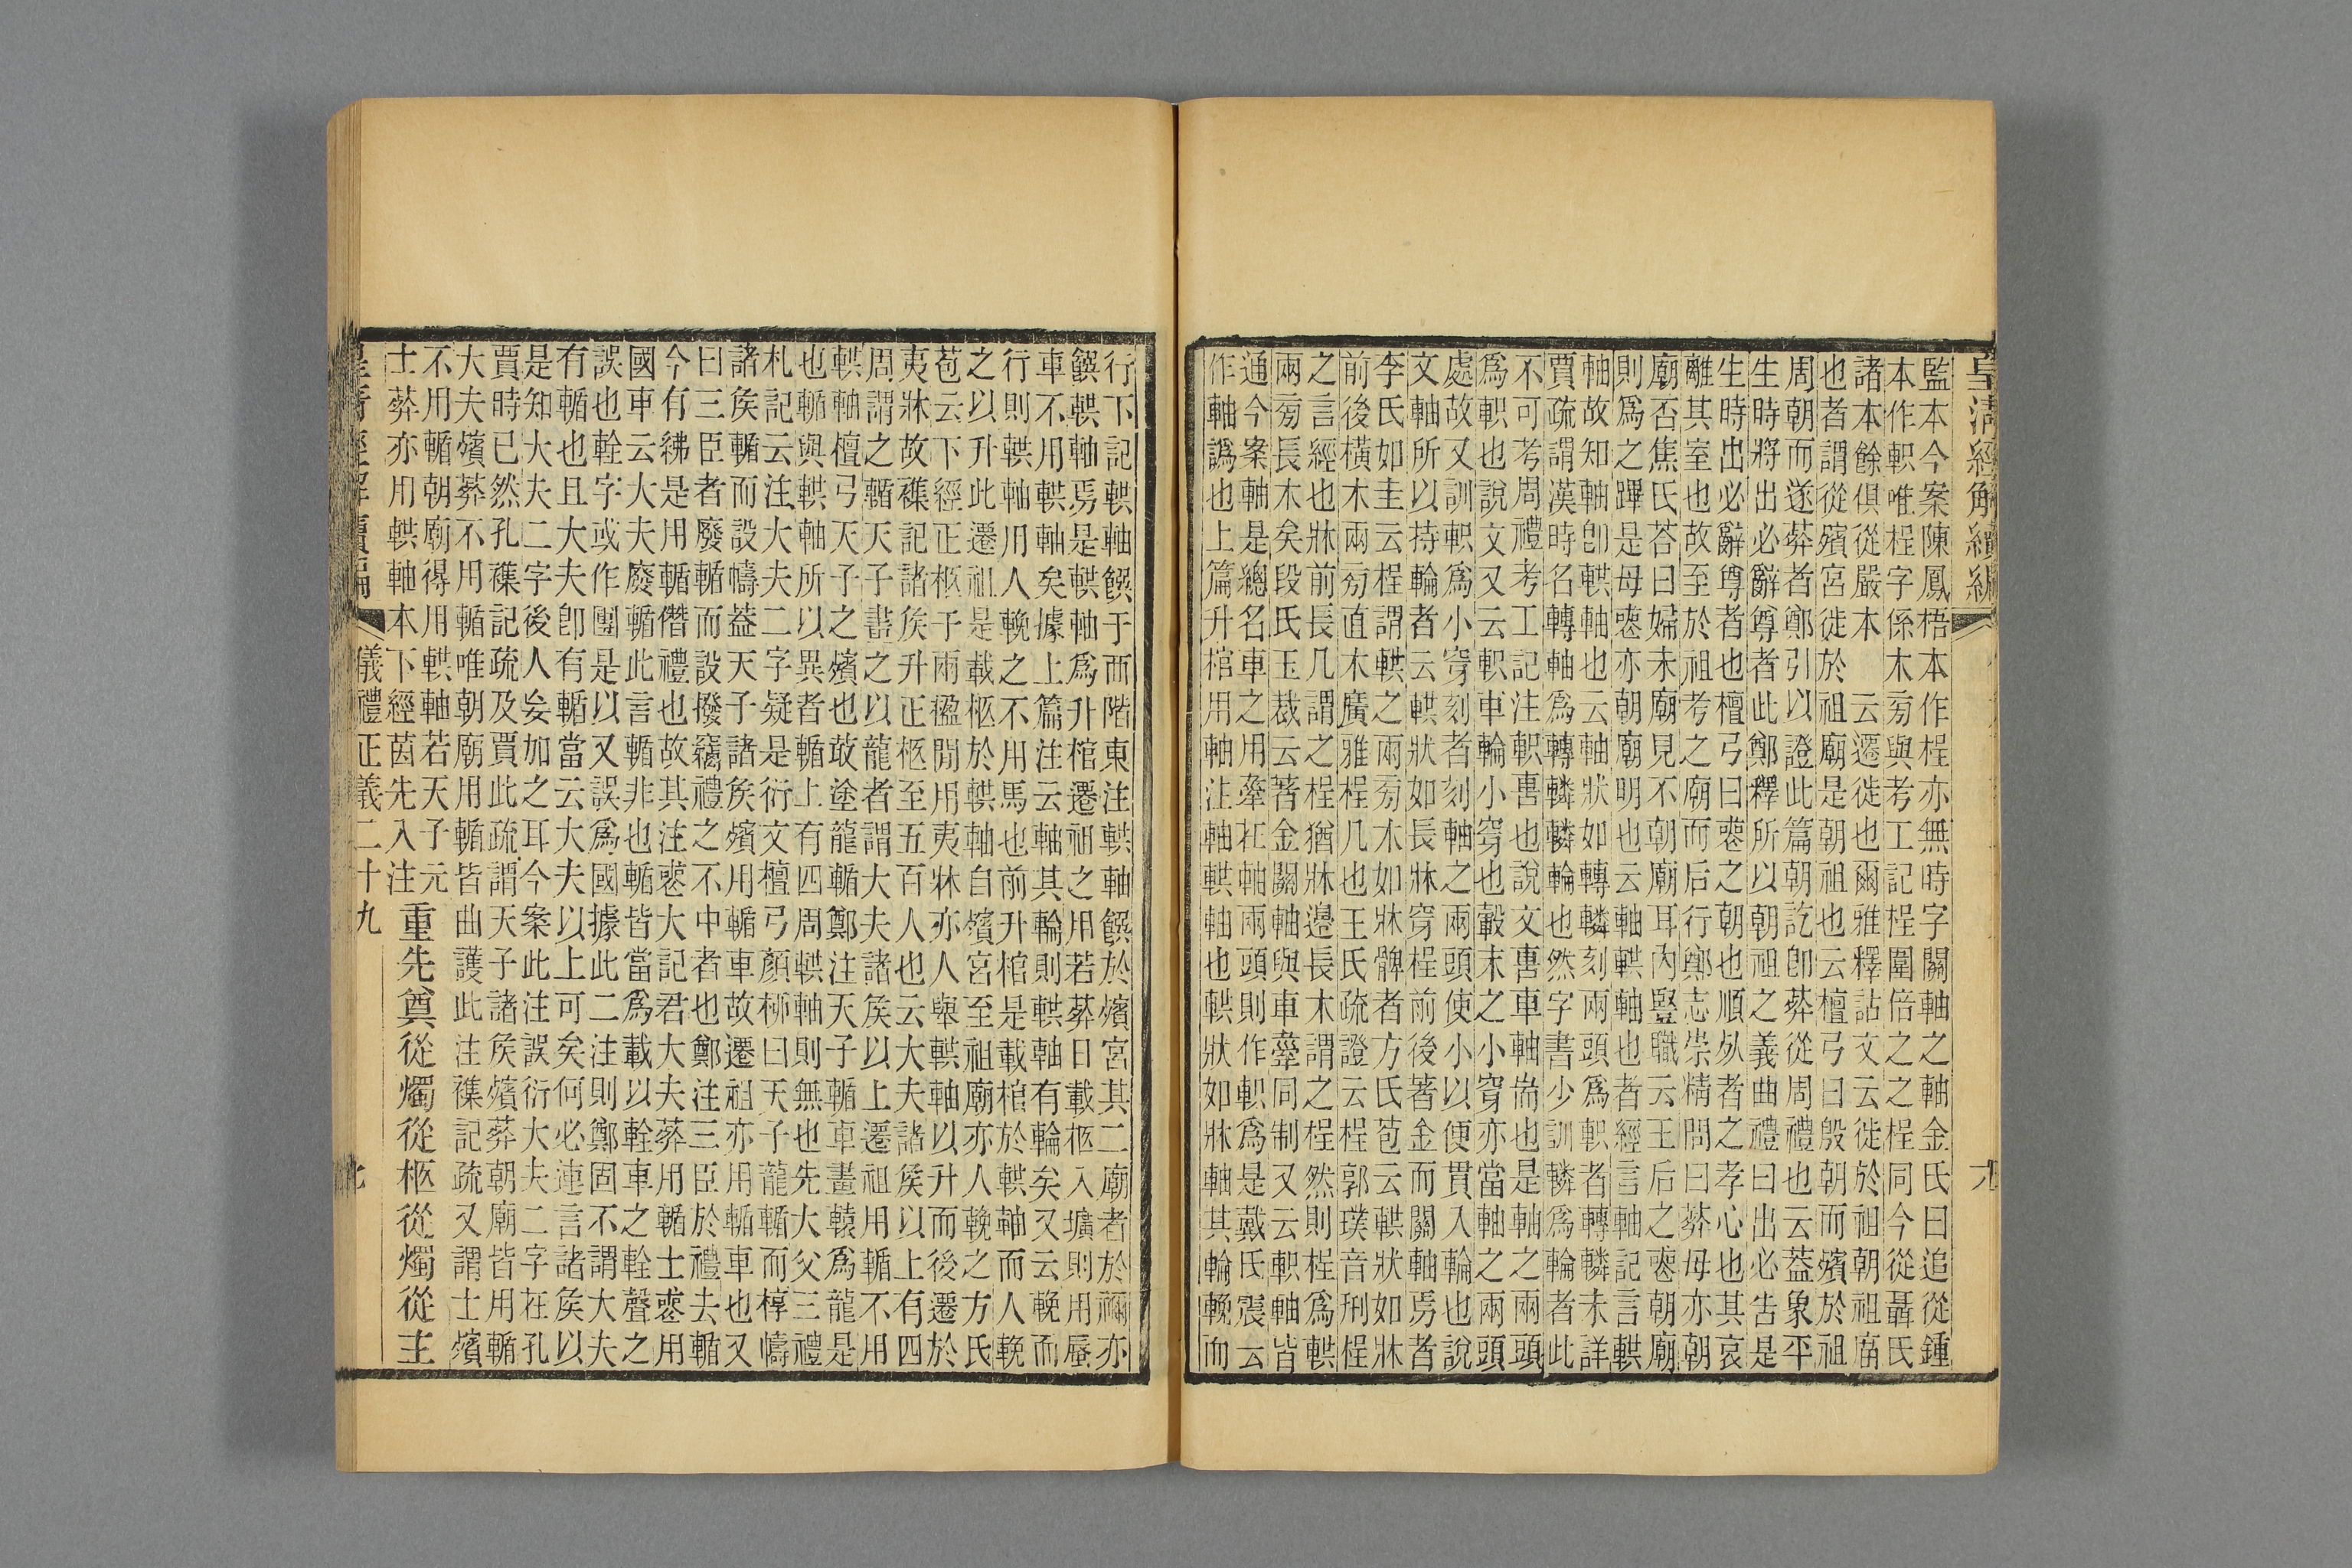 皇清經解續編
九
監本今案陳鳳梧本作桯亦無時字關軸之軸金氏曰追從鍾
本作軹唯桯字係木㫄與考工記桯圍倍之之桯同今從聶氏
諸本餘俱從嚴本 云遷徙也爾雅釋詁文云徙於祖朝祖廟
也者謂從殯宮徙於祖廟是朝祖也云檀弓曰殷朝而殯於祖
周朝而遂葬者鄭引以證此篇朝訖卽葬從周禮也云葢象平
生時將出必辭尊者此鄭釋所以朝祖之義曲禮曰出必告是
生時出必辭尊者也檀弓曰喪之朝也順死者之孝心也其哀
離其室也故至於祖考之廟而后行鄭志崇精問曰葬母亦朝
廟否焦氏荅曰婦未廟見不朝廟耳內豎職云王后之喪朝廟
則爲之蹕是母喪亦朝廟明也云軸輁軸也者經言軸記言輁
軸故知軸卽輁軸也云軸狀如轉轔刻兩頭爲軹者轉轔未詳
賈疏謂漢時名轉軸爲轉轔轔輪也然字書少訓轔爲輪者此
不可考周禮考工記注軹軎也說文軎車軸耑也是軸之兩頭
爲軹也說文又云軹車輪小穿也轂末之小穿亦當軸之兩頭
處故又訓軹爲小穿刻者刻軸之兩頭使小以便貫入輪也說
文軸所以持輪者云輁狀如長牀穿桯前後著金而關軸焉者
李氏如圭云桯謂輁之兩㫄木如牀髀者方氏苞云輁狀如牀
前後橫木兩㫄直木廣雅桯几也王氏疏證云桯郭璞音刑桯
之言經也牀前長几謂之桯猶牀邊長木謂之桯然則桯爲輁
兩㫄長木矣段氏玉裁云著金關軸與車轝同制又云軹軸皆
通今案軸是總名車之用舝在軸兩頭則作軹爲是戴氏震云
作軸譌也上篇升棺用軸注軸輁軸也輁狀如牀軸其輪輓而
行下記輁軸饌于西階東注輁軸饌於殯宮其二廟者於禰亦
饌輁軸焉是輁軸爲升棺遷祖之用若葬日載柩入壙則用蜃
車不用輁軸矣據上篇注云軸其輪則輁軸有輪矣又云輓而
行則輁軸用人輓之不用馬也前升棺是載棺於輁軸而人輓
之以升此遷祖是載柩於輁軸自殯宮至祖廟亦人輓之方氏
苞云下經正柩于兩楹閒用夷牀亦人轝輁軸以升而後遷於
夷牀故襍記諸矦升正柩至五百人也云大夫諸矦以上有四
周謂之輴天子畫之以龍者謂大夫諸矦以上遷祖用輴不用
輁軸檀弓天子之殯也菆塗龍輴鄭注天子輴車畫轅爲龍是
也輴與輁軸所以異者輴上有四周輁軸則無也先大父三禮
札記云注大夫二字疑是衍文檀弓顏柳曰天子龍輴而椁幬
諸矦輴而設幬葢天子諸矦殯用輴車故遷祖亦用輴車也又
曰三臣者廢輴而設撥竊禮之不中者也鄭注三臣於禮去輴
今有紼是用輴僭禮也故其注喪大記君大夫葬用輴士喪用
國車云大夫廢輴此言輴非也輴皆當爲載以輇車之輇聲之
誤也輇字或作團是以又誤爲國據此二注則鄭固不謂大夫
有輴也且大夫卽有輴當云大夫以上可矣何必連言諸矦以
是知大夫二字後人妄加之耳今案此注誤衍大夫二字在孔
賈時已然孔襍記疏及賈此疏謂天子諸矦殯葬朝廟皆用輴
大夫殯葬不用輴唯朝廟用輴皆曲護此注襍記疏又謂士殯
不用輴朝廟得用輁軸若天子元
士葬亦用輁軸本下經茵先入注 重先奠從燭從柩從燭從主
儀禮正義二十九